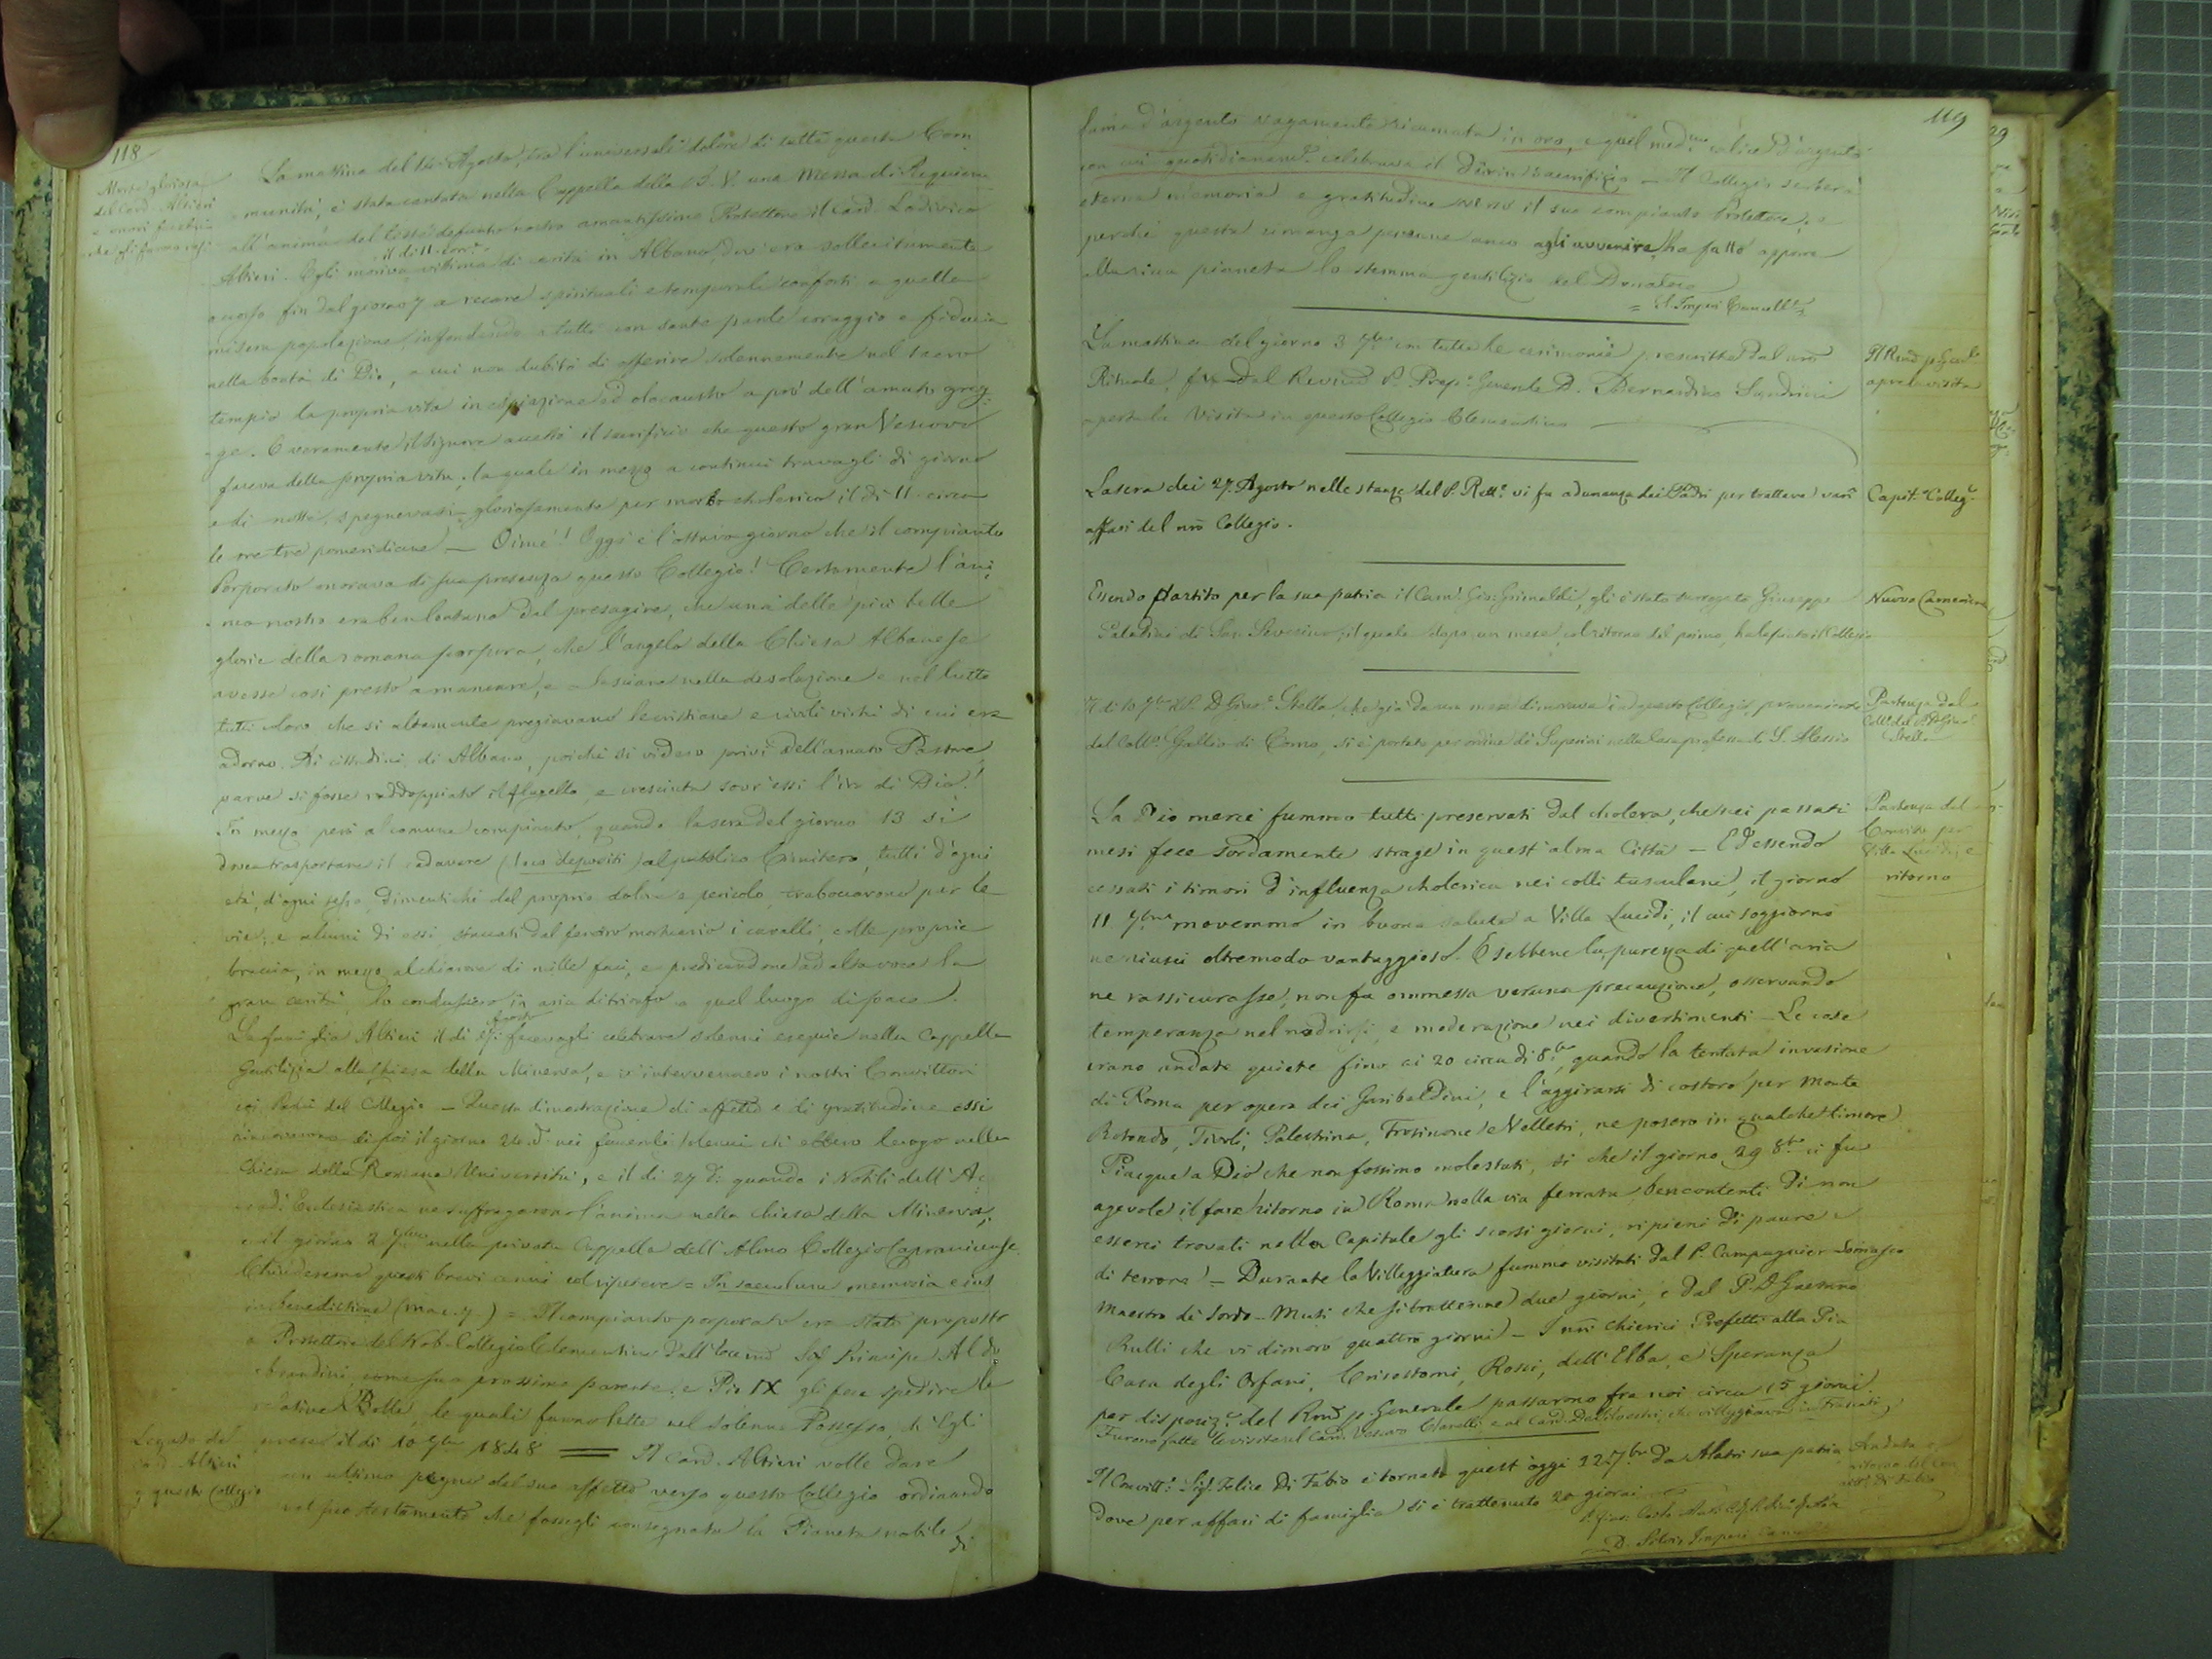 118
Morte gloriosa
del Card. Altieri
e onori funebri
che gli furono resi
La mattina del 14 Agosto, tra l'universale dolore di tutta questa Com
munità, è stata cantata nella Cappella della B. V. una Messa di Requiem
all'anima del testè defunto nostro amantissimo Protettore il Card. Lodovico
il dì 11 corr.
Altieri. Egli moriva vittima di carità in Albano, dov'era sollecitamente
accorso fin dal giorno 7 a recare spirituali e temporali conforti a quella
misera popolazione, infondendo a tutti con sante parole coraggio e fiducia
nella bontà di Dio, a cui non dubitò di offerire solennemente nel sacro
tempio la propria vita in espiazione ed olocausto a prò dell'amato greg-
ge. E veramente il Signore accettò il sacrificio che questo gran Vescovo
faceva della propria vita; la quale in mezzo a continui travagli di giorno
e di notte, spegnevasi gloriosamente per morbo cholerico il dì 11 circa
le ore tre pomeridiane — Oimè! Oggi è l'ottavo giorno che il compianto
Porporato onorava di sua presenza questo Collegio! Certamente l'ani
mo nostro era ben lontano dal presagire, che una delle più belle
glorie della romana porpora, che l'angelo della Chiesa Albanese
avesse così presto a mancare, e lasciare nella desolazione e nel lutto
tutti coloro che sì altamente pregiavano le cristiane e civili virtù di cui era
adorno. Ai cittadini di Albano, poichè si videro privi dell'amato Pastore,
parve si fosse raddoppiato il flagello, e cresciuta sovr'essi l'ira di Dio!
In mezzo però al comune compianto, quando la sera del giorno 13 si
dovea trasportare il cadavere (loco depositi) al pubblico Cimitero, tutti d'ogni
età, d'ogni sesso, dimentichi del proprio dolore e pericolo, traboccarono per le
vie; e alcuni di essi, staccati dal feretro mortuario i cavalli, colle proprie
braccia, in mezzo al chiarore di mille faci, e predicandone ad alta voce la
gran carità, lo condussero in aria di trionfo a quel luogo di pace.
La famiglia Altieri il dì facevagli celebrare solenni esequie nella Cappella
Gentilizia alla Chiesa della Minerva, e v'intervennero i nostri Convittori
coi Padri del Collegio — Questa dimostrazione di affetto e di gratitudine essi
di poi il giorno 26 d. nei funerali solenni che ebbero luogo nella
Chiesa della Romana Università, e il dì 27 d. quando i Nobili dell'Ac-
cad. Ecclesiastica ne suffragarono l'anima nella Chiesa della Minerva;
e il giorno 2 7bre nella privata Cappella dell'Almo Collegio Capranicense.
Chiuderemo questi brevi cenni col ripetere = In saeculum memoria eius
in benedictione (Mac. 7.) = Il compianto porporato era stato proposto
a Protettore del Nob. Collegio Clementino dall'Eccmo Sig. Principe Aldo
brandini, come suo prossimo parente, e Pio IX gli fece spedire le
relative Bolle, le quali furono lette nel solenne Possesso, ch'Egli
prese il dì 10 7bre 1848 = Il Card. Altieri volle dare
Legato del
Card. Altieri
a questo Collegio
un ultimo pegno del suo affetto verso questo Collegio ordinando
nel suo testamento che fossegli consegnata la Pianeta nobile
di
119
lama d'argento vagamente ricamata in oro, e quel med.mo calice d'argento
con cui quotidianamte celebrava il Divin sacrifizio — Il Collegio serberà
eterna memoria e gratitudine verso il suo compianto Protettore; e
perchè questa rimanga perenne anco agli avvenire, ha fatto apporre
alla ricca pianeta lo stemma gentilizio del Donatore
= S. Imperi Cancell.e
La mattina del giorno 3 7bre con tutte le cerimonie prescritte dal nro
Rituale, fu dal Revmo P. Prep.o Generale D. Bernardino Sandrini
aperta la Visita in questo Collegio Clementino
Il Rmo P. Gen.le
apre la visita
La sera dei 27. Agosto nelle stanze del P. Rett.e vi fu adunanza dei Padri per trattare varî
affari del nro Collegio.
Capit.o Colleg.e
Essendo partito per la sua patria il Cam.e Gio: Grimaldi, gli è stato surrogato Giuseppe
Paladini di San Severino; il quale dopo un mese, col ritorno del primo, ha lasciato il Collegio
Nuovo Cameriere
Il dì 10 7bre il P. D. Giov.i Stella, che già da un mese dimorava in questo Collegio, proveniente
dal Coll.o Gallio di Como, si è portato per ordine de' Superiori nella Casa professa di S. Alessio
Partenza dal
Coll.o del P. D. Giov.i
Stella
La Dio mercè fummo tutti preservati dal cholera, che nei passati
mesi fece sordamente strage in quest'alma Città — Ed essendo
cessati i timori d'influenza cholerica nei colli tusculani, il giorno
11 7bre movemmo in buona salute a Villa Lucidi, il cui soggiorno
ne riuscì oltremodo vantaggioso. E sebbene la purezza di quell'aria
ne rassicurasse, non fu ommessa veruna precauzione, osservando
temperanza nel nudrirsi, e moderazione nei divertimenti — Le cose
erano andate quiete fino ai 20 circa di 8bre, quando la tentata invasione
di Roma per opera dei Garibaldini, e l'aggirarsi di costoro per Monte
Rotondo, Tivoli, Palestrina, Frosinone e Velletri, ne posero in qualche timore
Piacque a Dio che non fossimo molestati, sì che il giorno 29 8bre ci fu
agevole il fare ritorno in Roma nella via ferrata, ben contenti di non
esserci trovati nella Capitale gli scorsi giorni, ripieni di paure e
di terrore! — Durante la Villeggiatura fummo visitati dal P. Campagner Somasco
Maestro di Sordo-Muti che si trattenne due giorni, e dal P. D. Gaetano
Rulli che vi dimorò quattro giorni — I nri chierici Prefetti alla Pia
Casa degli Orfani, Crisostomi, Rossi, dell'Elba, e Speranza
per disposiz.e del Rmo P. Generale passarono fra noi circa 15 giorni.
Furono fatte le visite al Card. Vescovo Clarelli e al Card. De Silvestri, che villeggiava in Frascati
Partenza del
Convitto per
Villa Lucidi, e
ritorno
Il Convitt.e Sig. Felice Di Fabio è tornato quest'oggi 12 7bre da Alatri sua patria
dove per affari di famiglia si è trattenuto 20 giorni
Andata e
ritorno del Con
vitt. Di Fabio
D. Silvio Imperi Canc.